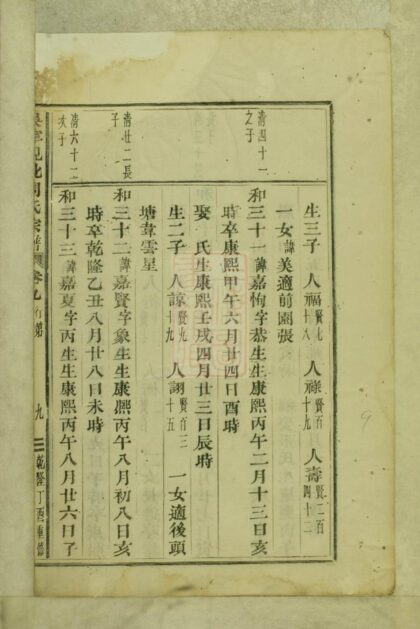 生三子 人福賢七十八 人祿賢百十九 人壽賢二百四十二
一女諱美適前園張
清四十一之子
和三十一諱嘉恂字恭生生康熙丙午二月十三日亥
時卒康熙甲午六月廿四日酉時
娶 氏生康熙壬戌四月廿三日辰時
生二子 人諒賢九十九 人詡賢百三十五 一女適後頭
塘韋雲星
清廿二長子
和三十二諱嘉賢字象生生康熙丙午八月初八日亥
時卒乾隆乙丑八月廿八日未時
清六十二次子
和三十三諱嘉夏字丙生生康熙丙午八月廿六日子
邑北周氏宗譜 卷九 行第 九 乾隆丁酉重修